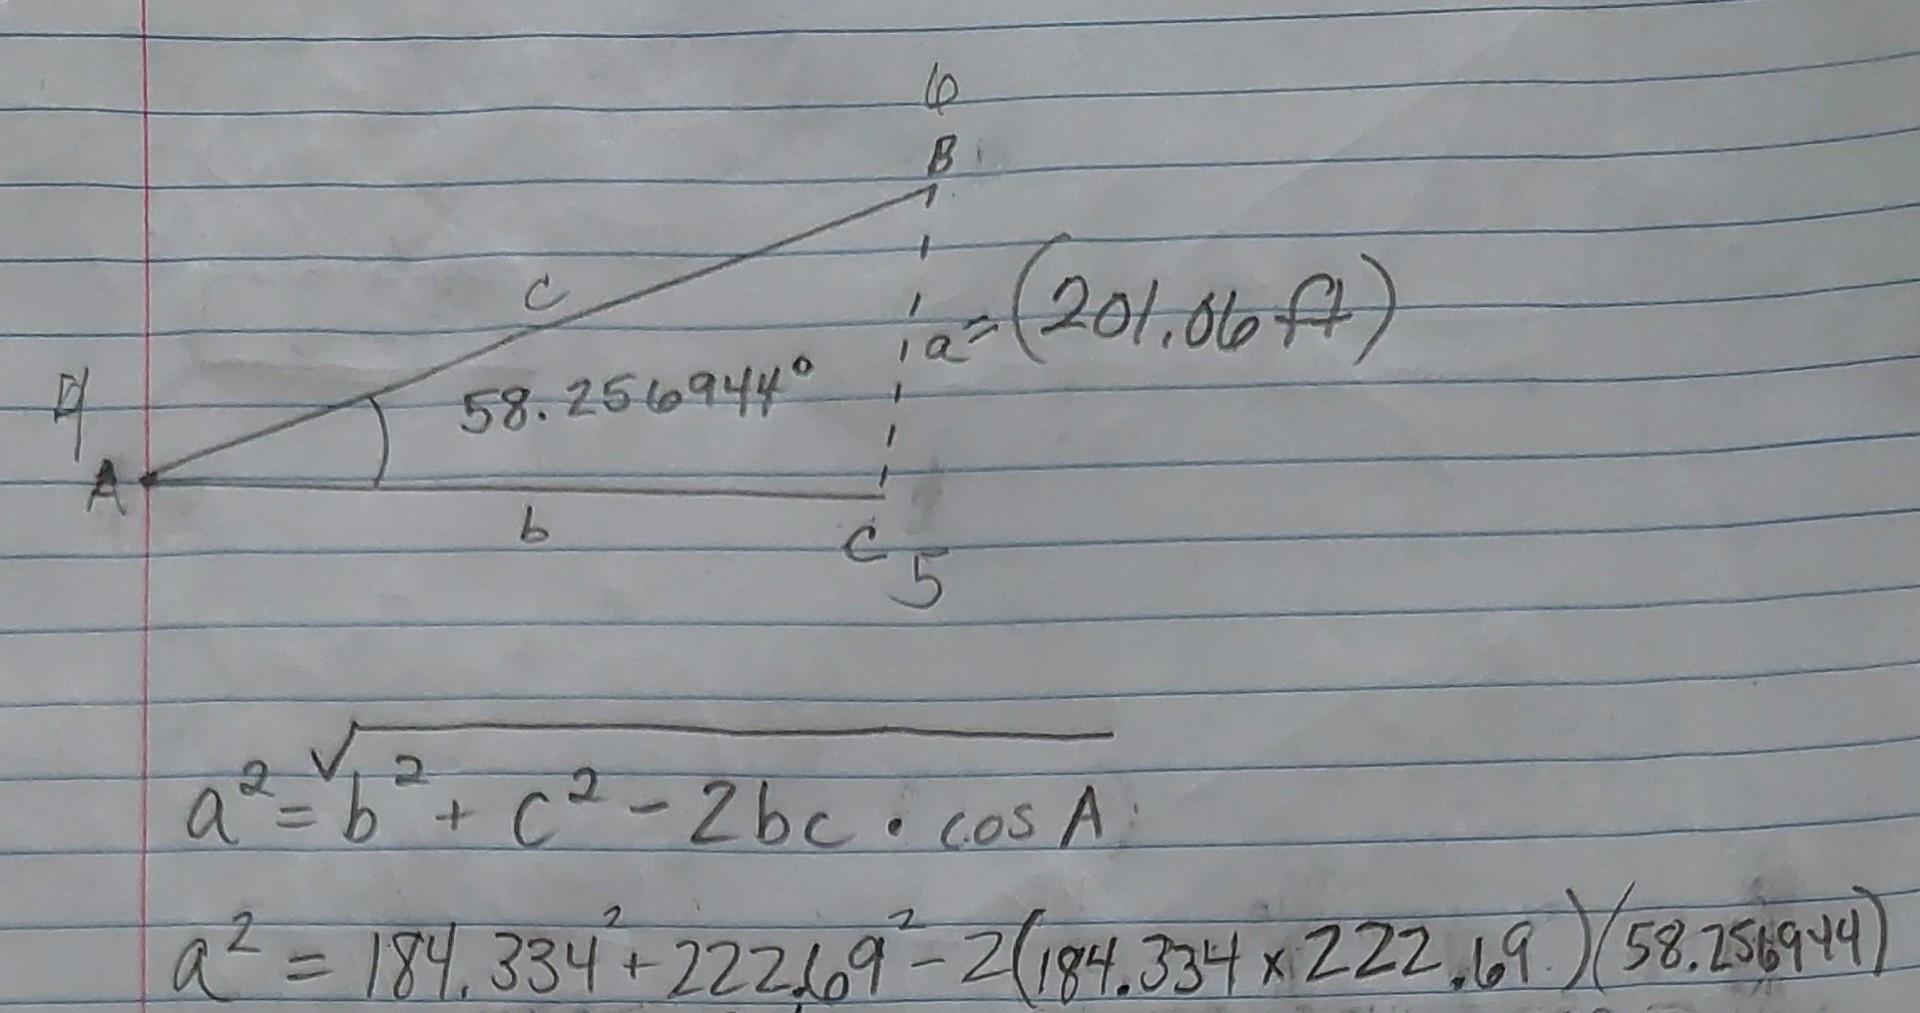 6
B
c
a = (201.06 ft)
58.256944°
A
b
C
5
a² = √b² + c² - 2bc • cos A
a² = 184.334² + 222.69² - 2(184.334 x 222.69)(58.256944)